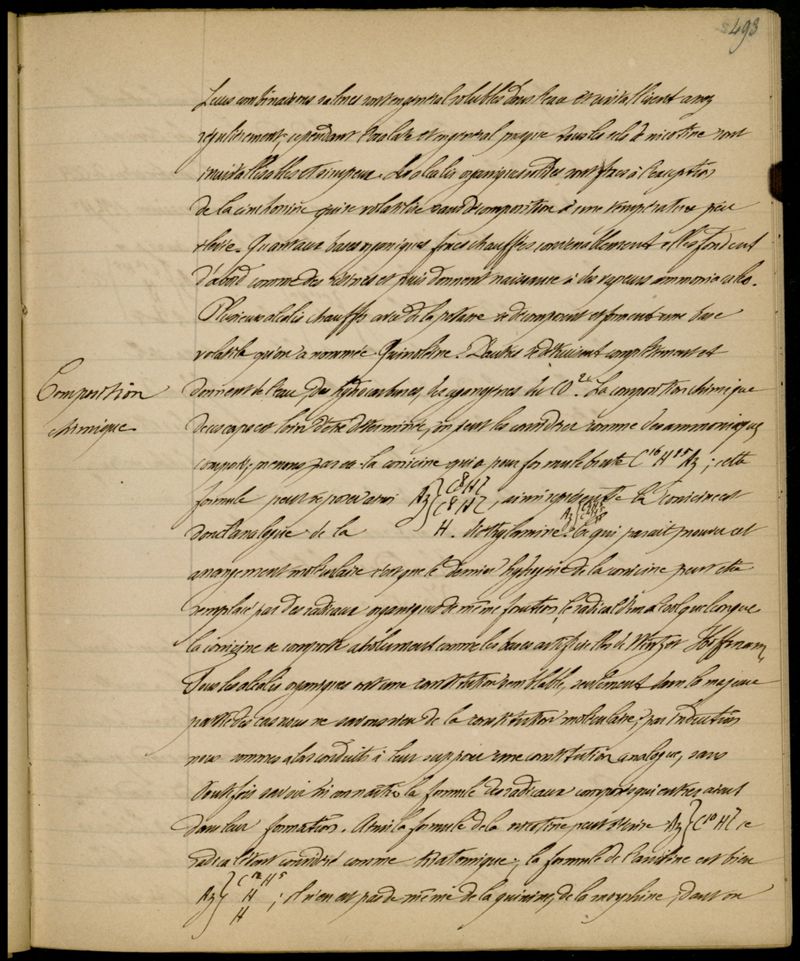 493
Leurs combinaisons salines sont en général solubles dans l'eau et cristallisent assez
régulièrement; cependant l'oxalate et en général presque tous les sels de nicotine sont
incristallisables et sirupeux. Les alcalis organiques solides sont fixes à l'exception
de la cinchonine qui se volatilise sans décomposition à une température peu
élevée. Quant aux bases organiques fixes chauffées convenablement elles fondent
d'abord comme des résines et puis donnent naissance à des vapeurs ammoniacales.
Plusieurs alcalis chauffés avec de la potasse se décomposent et forment une base
volatile qu'on a nommée Quinoléine. D'autres se détruisent complètement et
Composition
chimique
donnent de l'eau, des hydrocarbures, du CO². La composition chimique
de ces corps est loin d'être déterminée, on peut les considérer comme des ammoniaques
composés; prenons par ex. la conicine qui a pour formule brute C¹⁶H¹⁵Az; cette
formule peut se poser ainsi Az} C⁸H⁷ C⁸H⁷ H, ainsi représentée la conicine est
donc l'analogue de la diéthylamine Az{ . Ce qui parait prouver cet
arrangement moléculaire c'est que le dernier hydrogène de la conicine peut être
remplacé par des radicaux organiques de même fonction, le radical d'un alcool quelconque
la conicine se comporte absolument comme les bases artificielles de Wurtz et Hoffmann.
Tous les alcalis organiques ont une constitution semblable, seulement dans la majeure
partie des cas nous ne savons rien de la constitution moléculaire; par induction
nous sommes alors conduits à leur supposer une constitution analogue, sans
toutefois savoir ni connaître la formule des radicaux composés qui entreraient
dans leur formation. Ainsi la formule de la nicotine peut s'écrire Az} C¹⁰H⁷ ce
radical étant considéré comme triatomique; la formule de l'aniline est bien
Az} C¹²H⁵ H H; il n'en est pas de même de la quinine, de la morphine, dont on